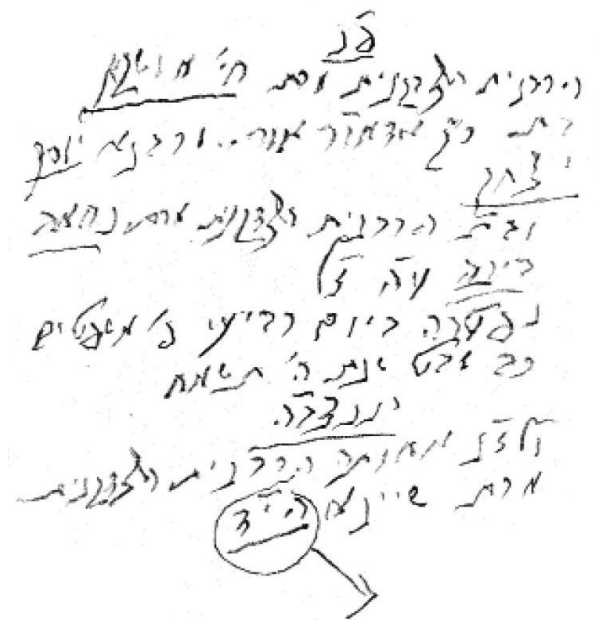 פ"נ
הרבנית הצדקנית מרת חי' מושקא
בת כ"ק אדמו"ר אור.. ורבנא יוסף
יצחק
ובת הרבנית הצדקנית מרת נחמה
דינה ע"ה ז"ל
נפטרה ביום רביעי פ' משפטים
כב שבט שנת ה' תשמח
תנצב"ה
אחותה הרבנית הצדקנית
מרת שיינא הי"ד